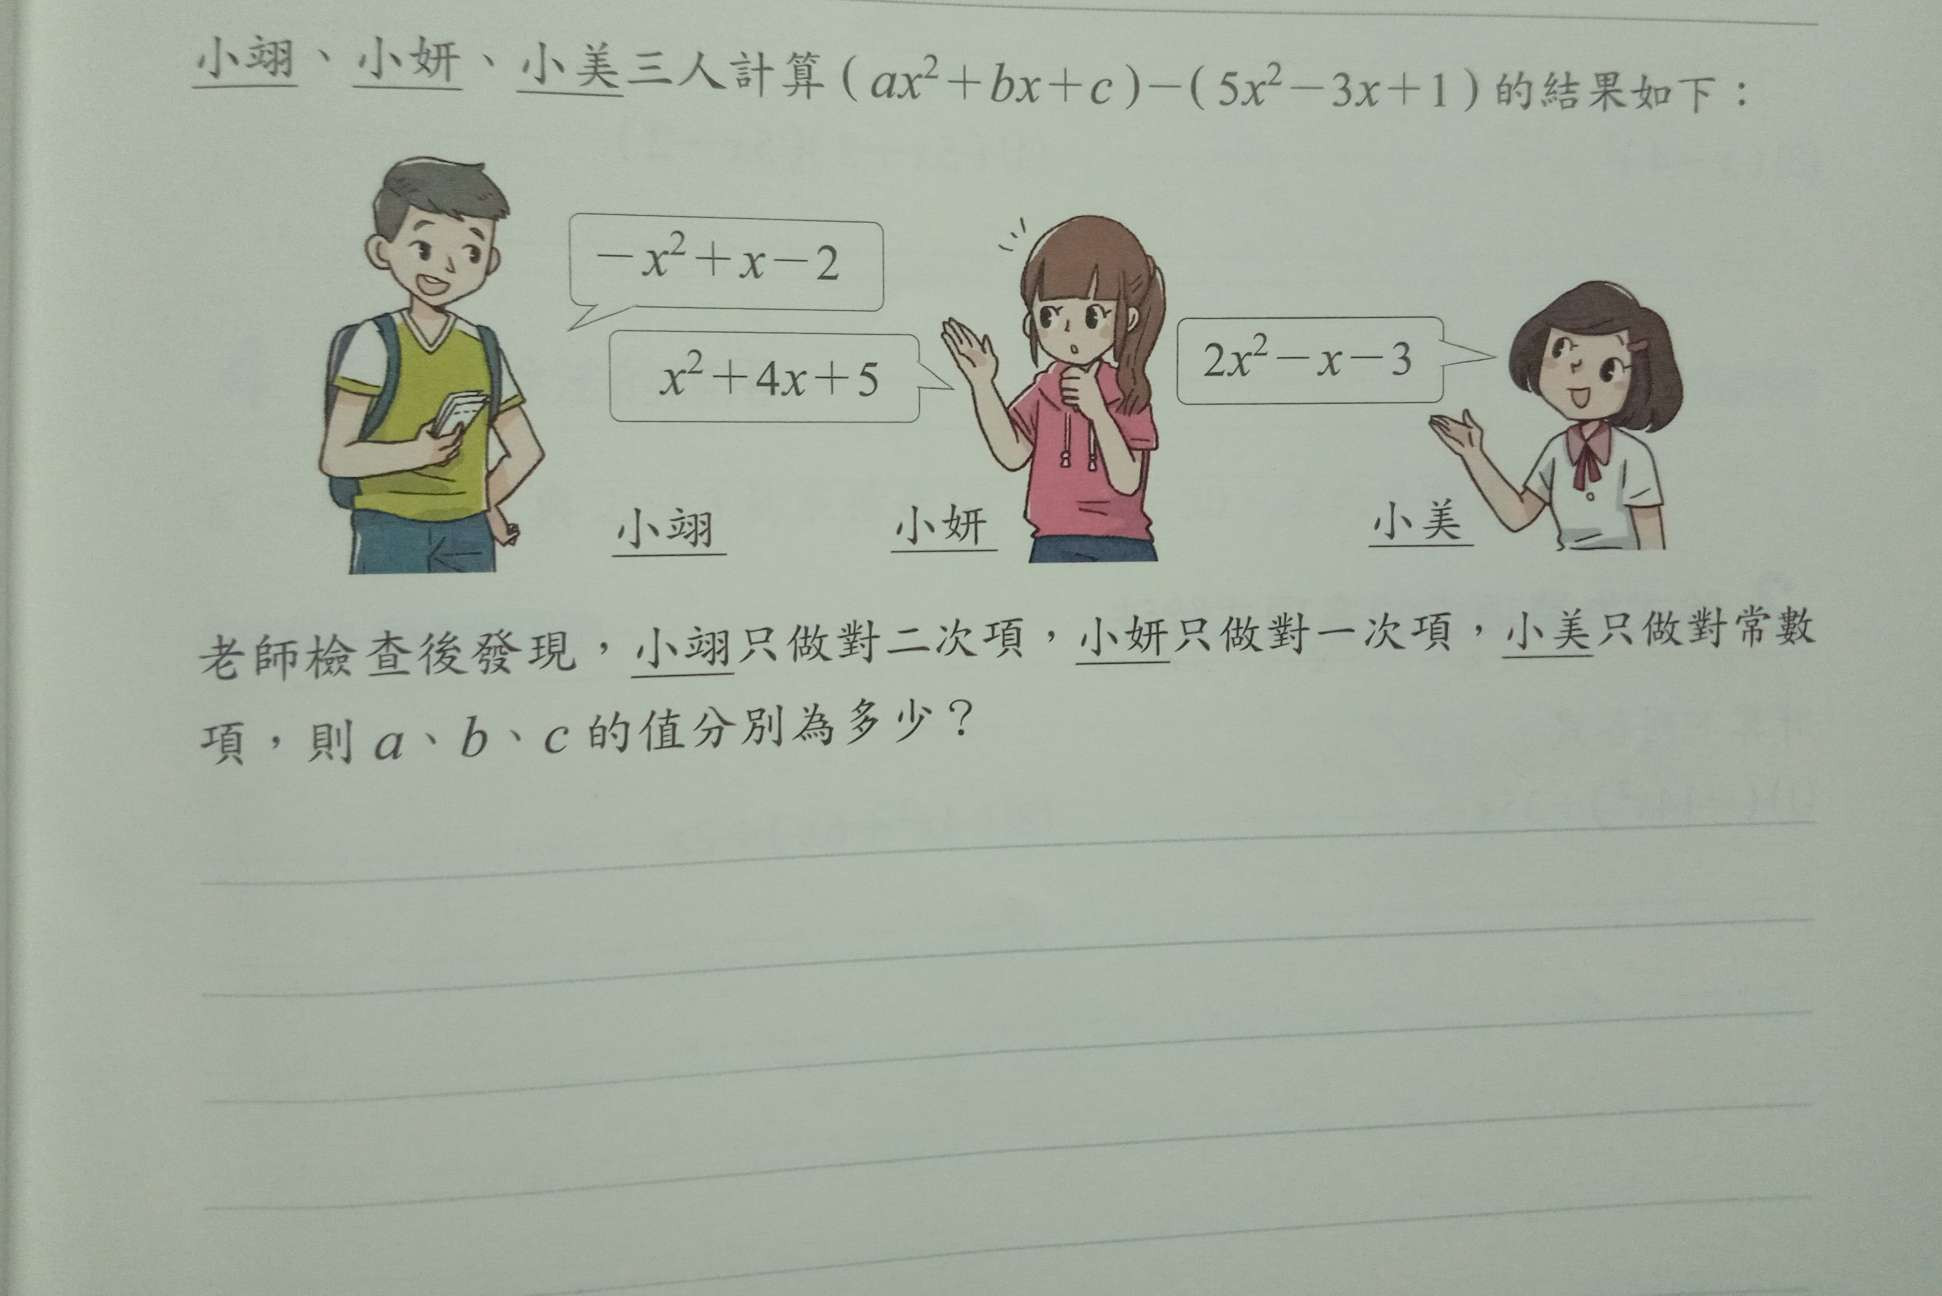 小翊、小妍、小美三人計算(ax²+bx+c)-(5x²-3x+1)的結果如下：
-x²+x-2
x²+4x+5
2x²-x-3
小翊
小妍
小美
老師檢查後發現，小翊只做對二次項，小妍只做對一次項，小美只做對常數
項，則 a、b、c 的值分別為多少？